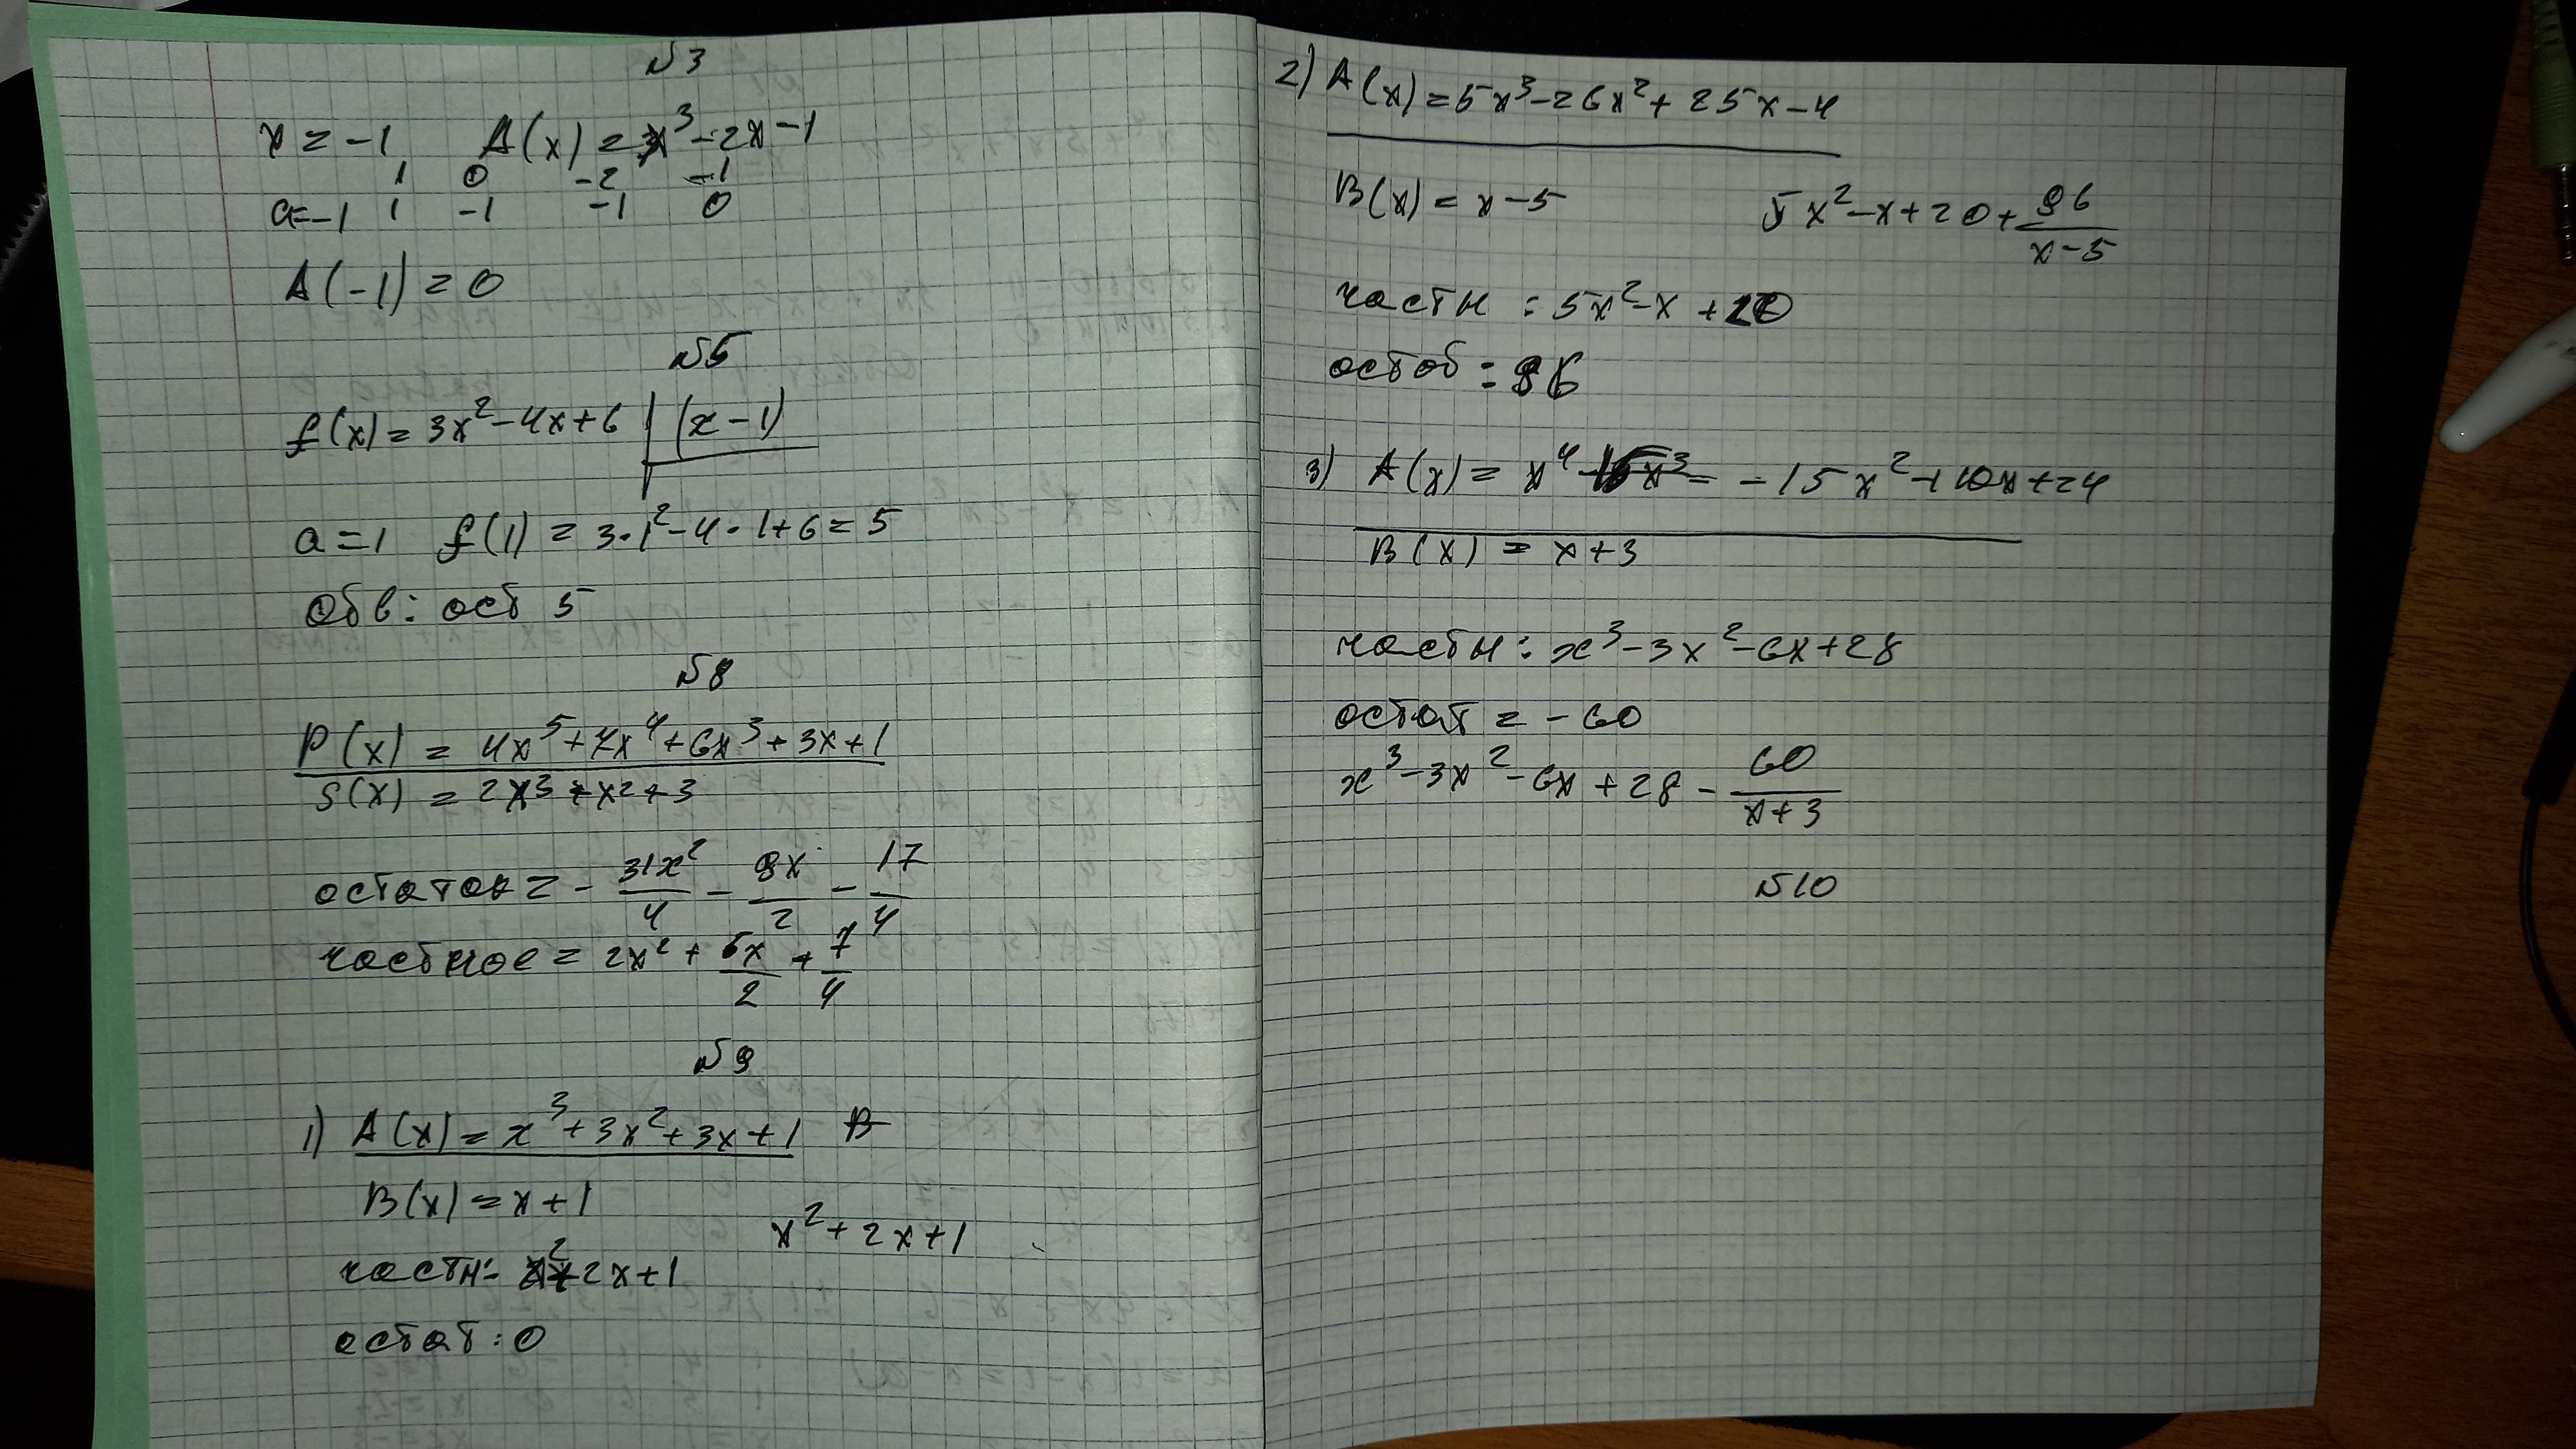 №3
x = -1 A(x) = x³-2x-1
1 0 -2 -1
a=-1 1 -1 -1 0
A(-1) = 0
№5
f(x) = 3x²-4x+6 | (x-1)
a=1 f(1) = 3·1²-4·1+6=5
Отв: ост 5
№8
P(x) = 4x⁵+7x⁴+6x³+3x+1
S(x) = 2x³+x²+3
остаток = - 31x²/4 - 9x/2 - 17/4
частное = 2x² + 5x/2 + 7/4
№9
1) A(x) = x³+3x²+3x+1 B
B(x) = x+1
x²+2x+1
частн: x²+2x+1
остат: 0
2) A(x) = 5x³-26x²+25x-4
B(x) = x-5
5x²-x+20+ 96/(x-5)
частн : 5x²-x+20
остат : 96
3) A(x) = x⁴ -15x²+10x+24
B(x) = x+3
частн: x³-3x²-6x+28
остат = -60
x³-3x²-6x+28 - 60/(x+3)
№10